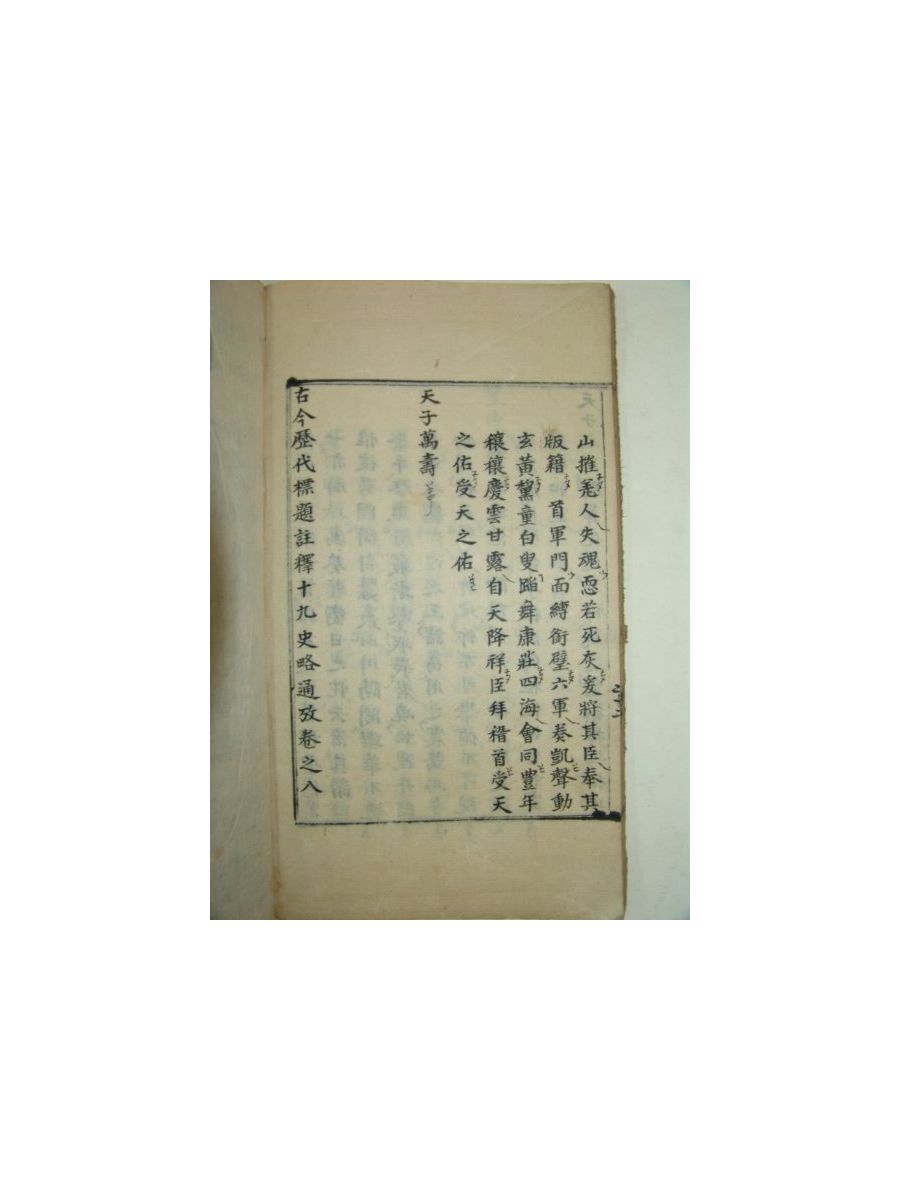 山摧羗人失魂恧若死灰爰將其臣奉其
版籍 首軍門面縛銜璧六軍葵凱聲動
玄黃黧童白叟蹈舞康莊四海會同豊年
穰穰慶雲甘露自天降祥臣拜稽首受天
之佑受天之佑
天子萬壽
古今歷代標題註釋十九史略通攷卷之八